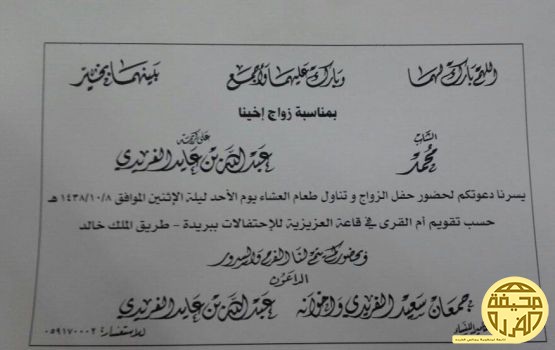 اللهم بارك لهما وبارك عليهما وأجمع بينهما بخير
بمناسبة زواج إخينا
الشاب
محمد
على كريمة
عبدالله بن عايد الفريدي
يسرنا دعوتكم لحضور حفل الزواج و تناول طعام العشاء يوم الأحد ليلة الإثنين الموافق ١٤٣٨/١٠/٨ هـ
حسب تقويم أم القرى في قاعة العزيزية للإحتفالات ببريدة - طريق الملك خالد
وبحضوركم يتم لنا الفرح والسرور
الداعون
جمعان سعيد الفريدي وإخوانه عبدالله بن عايد الفريدي
للاستفسار: ٠٥٩١٧٠٠٠٢
صحيفة